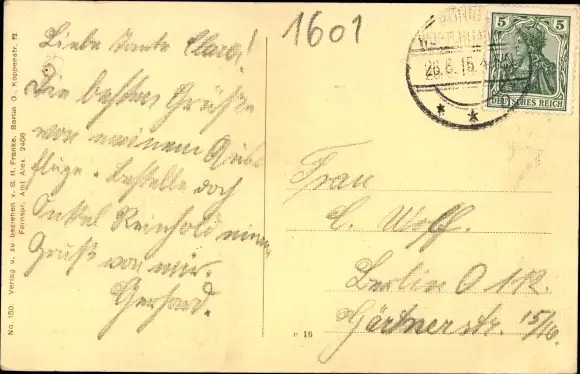 1601
Liebe Tante Clara!
Die besten Grüße
von meinem Aus-
fluge. Bestelle doch
Onkel Reinhold einen
Gruß von mir.
Gerhard.
No. 150 Verlag u. zu beziehen v. G. H. Franke, Berlin O., Koppenstr. 72
Fernspr. Amt Alex. 2408
26.6.15.
5 5
DEUTSCHES REICH
Frau
C. Wolff.
Berlin O
Gärtnerstr. 15/16.
e 16